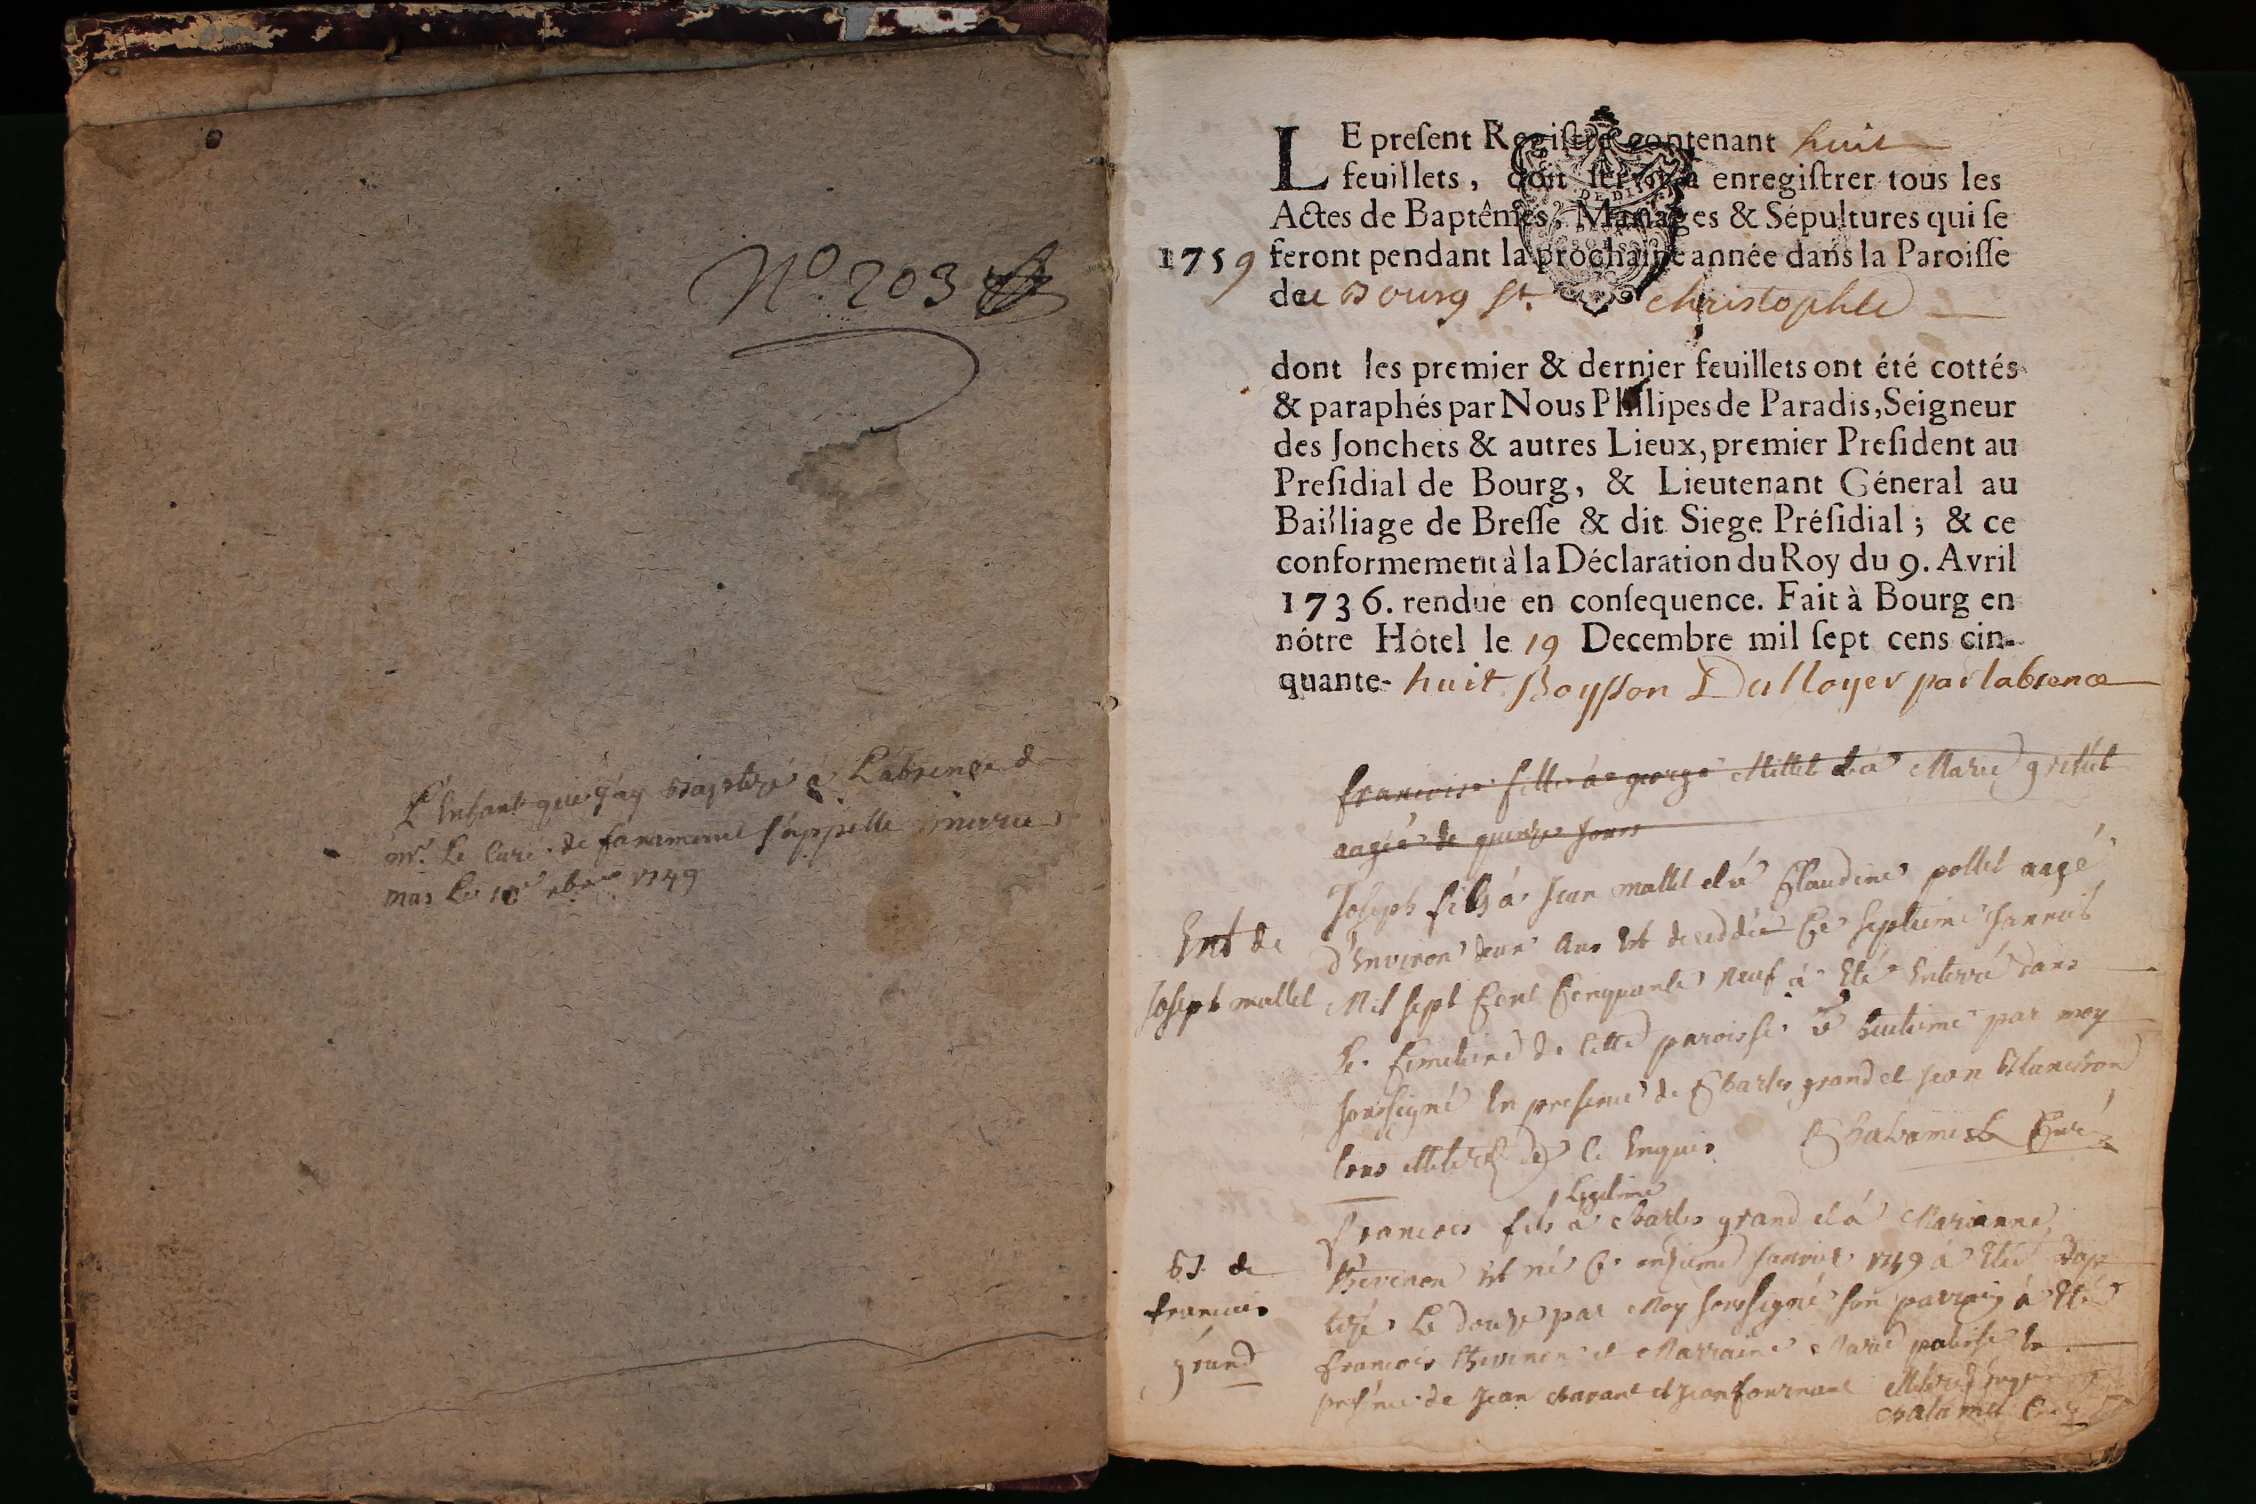 N.o 203
L'Enfant que j'ay Baptizé à L'absence de
mr. Le Curé de s'appelle
mas Le 1749
LE preſent Regiſtre contenant huit
feuillets, doit ſervir à enregiſtrer tous les
Actes de Baptêmes, Mariages & Sépultures qui ſe
1759 feront pendant la prochaine année dans la Paroiſſe
de Bourg St. Christophle
dont les premier & dernier feuillets ont été cottés
& paraphés par Nous Philipes de Paradis, Seigneur
des Jonchets & autres Lieux, premier Preſident au
Preſidial de Bourg, & Lieutenant Géneral au
Bailliage de Breſſe & dit Siege Préſidial ; & ce
conformement à la Déclaration du Roy du 9. Avril
1736. renduë en conſequence. Fait à Bourg en
nôtre Hôtel le 19 Decembre mil ſept cens cin-
quante- huit. par labsence
francoise fille à george Millet et à Marie
aagée de quinze jours
Joseph fils à Jean mallet et à Claudine pollet aagé
Ent de
d'Environ deux Ans est deceddé Ce septieme Janvier
Joseph mallet
Mil sept Cent Cinquante Neuf à Eté Enterré dans
Le Cimetiere de Cette paroisse Le huitieme par moy
soussigné En presence de Charles grand et Jean Blanchon
tous de Ce Enquis Chalamel Curé
Legitime
francois fils à Charles grand et à Marianne
Bt. de
Thevenon Est né Ce onzieme Janvier 1749 à Eté Bap
francois
tisé Le douze par Moy soussigné son parrain à Eté
grand
francois Thevenon et Marraine Marie En
presence de Jean Chavant et Jean fournant
Chalamel Curé